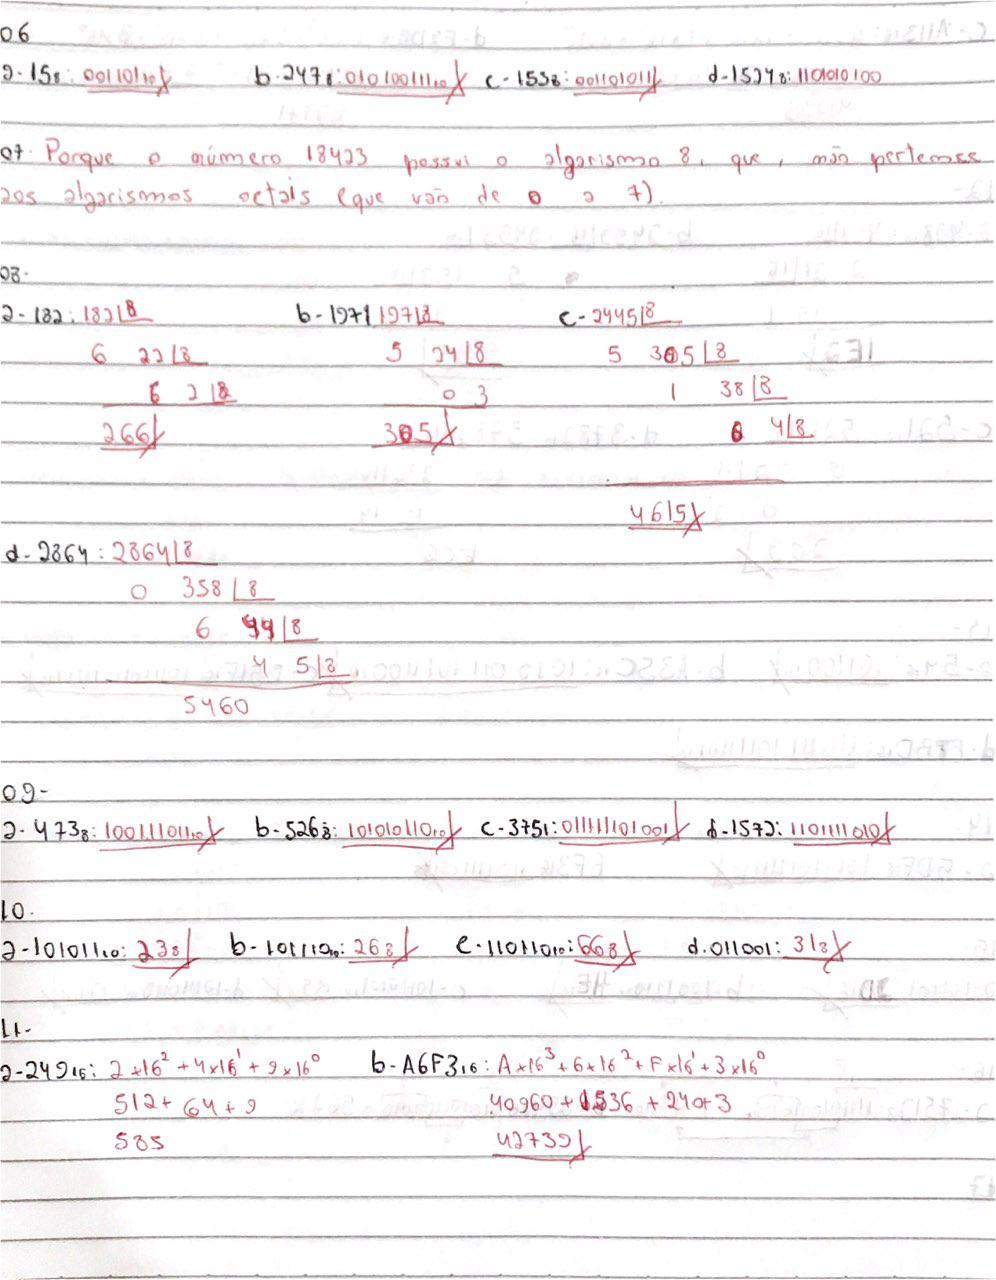 06
a-15₈: 001101₁₀ b-247₈: 010100111₁₀ c-153₈: 001101011 d-1524₈: 1101010100
07. Porque o número 18423 possui o algarismo 8, que, não pertense
aos algarismos octais (que vão de 0 a 7).
08-
a-182: 182|8 b-197| 197|8 c-2445|8
6 22|8 5 24|8 5 305|8
6 2|8 0 3 1 38|8
266 305 6 4|8
4615
d-2864: 2864|8
0 358|8
6 44|8
4 5|8
5460
09-
a-473₈: 100111011₁₀ b-526₈: 101010110₁₀ c-3751: 011111101001 d-1572: 1101111010
10.
a-1010111₀: 23₈ b-1011110₁₀: 26₈ c-1101101₁₀: 66₈ d.011001: 31₈
11-
a-249₁₆: 2×16² + 4×16¹ + 9×16⁰ b-A6F3₁₆: A×16³ + 6×16² + F×16¹ + 3×16⁰
512 + 64 + 9 40960 + 1536 + 240+3
585 42739